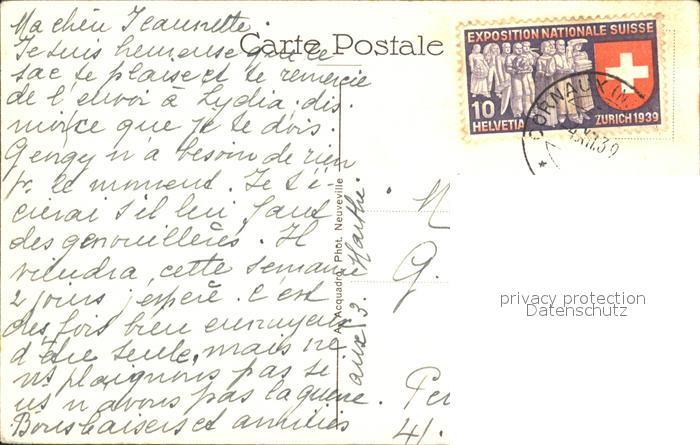 Carte Postale
Ma chère Jeannette.
Je suis heureuse que le
sac te plaise et te remercie
de l'envoi à Lydia. dis
moi ce que je te dois.
Georgy n'a besoin de rien
pr. le moment. Je t'é-
crirai s'il lui faut
des genouillères. Il
viendra cette semaine
2 jours j'espère. C'est
des fois bien ennuyeux
d'être seule, mais ne
ns plaignons pas si
ns n'avons pas la guerre.
Bons baisers et amitiés
aux 3. Marthe.
A. Acquadro, Phot. Neuveville
EXPOSITION NATIONALE SUISSE
10
HELVETIA
ZURICH 1939
CORNAUX (N
XII.39
M
G.
41.
privacy protection
Datenschutz